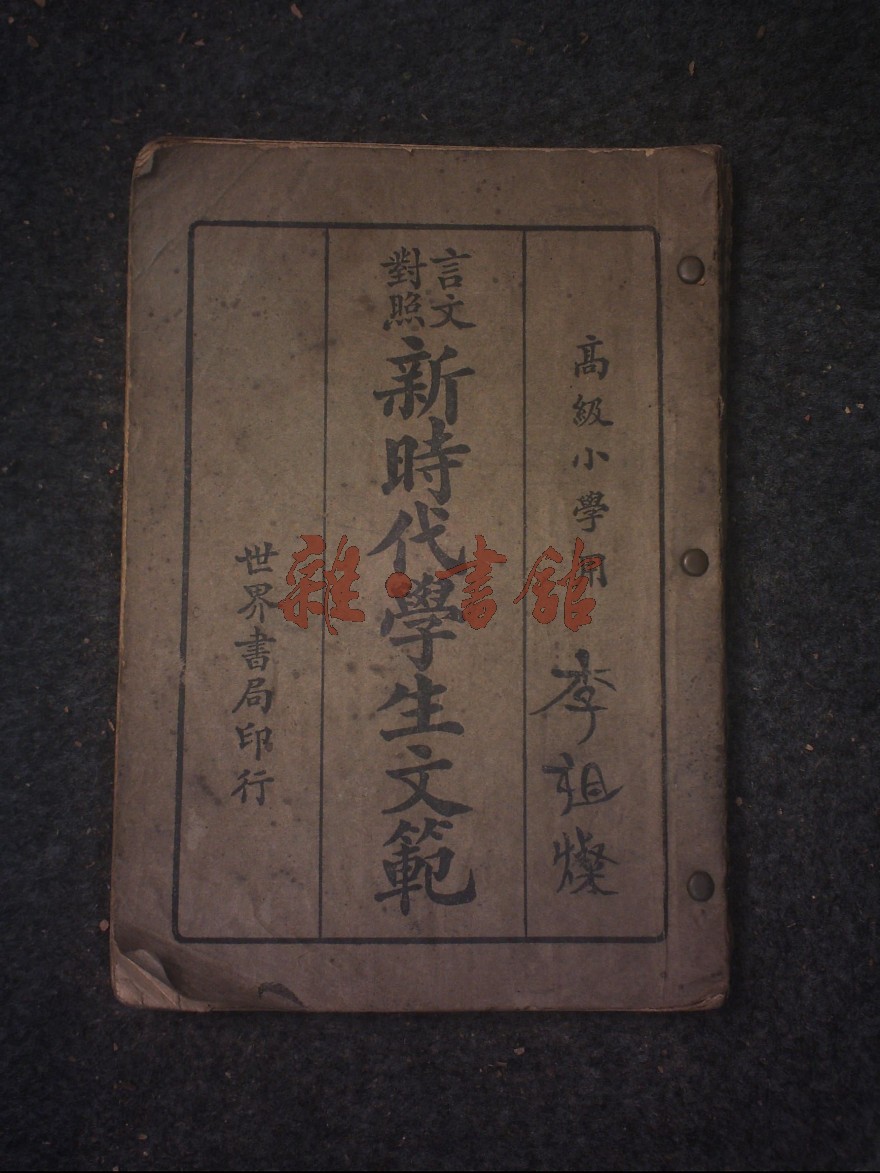 高級小學用
李祖燦
言文
對照
新時代學生文範
世界書局印行
雜·書館